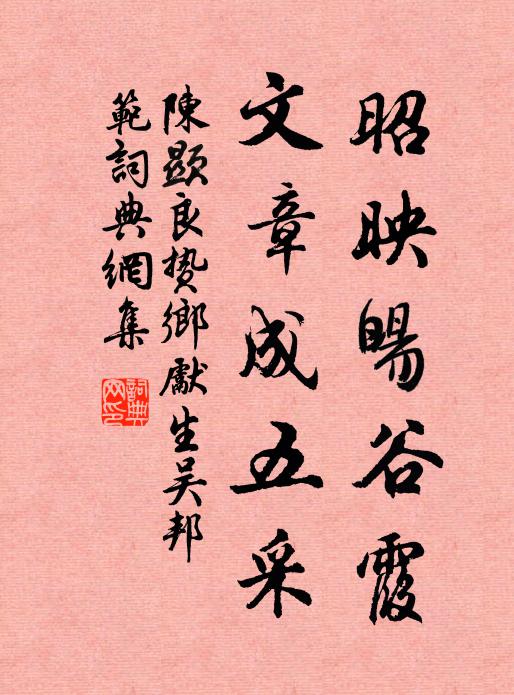 昭映暘谷霞
文章成五采
陳顯良贄鄉獻生吴邦
範詞典網集
詞典
网印